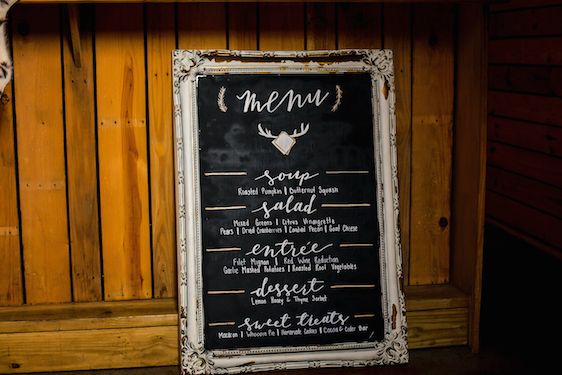 menu
soup
Roasted Pumpkin | Butternut Squash
salad
Mixed Greens | Citrus Vinaigrette
Pears | Dried Cranberries | Candied Pecan | Goat Cheese
entrée
Filet Mignon | Red Wine Reduction
Garlic Mashed Potatoes | Roasted Root Vegetables
dessert
Lemon Honey & Thyme Sorbet
sweet treats
Macaron | Whoopie Pie | Homemade Cookies | Cocoa & Cider Bar